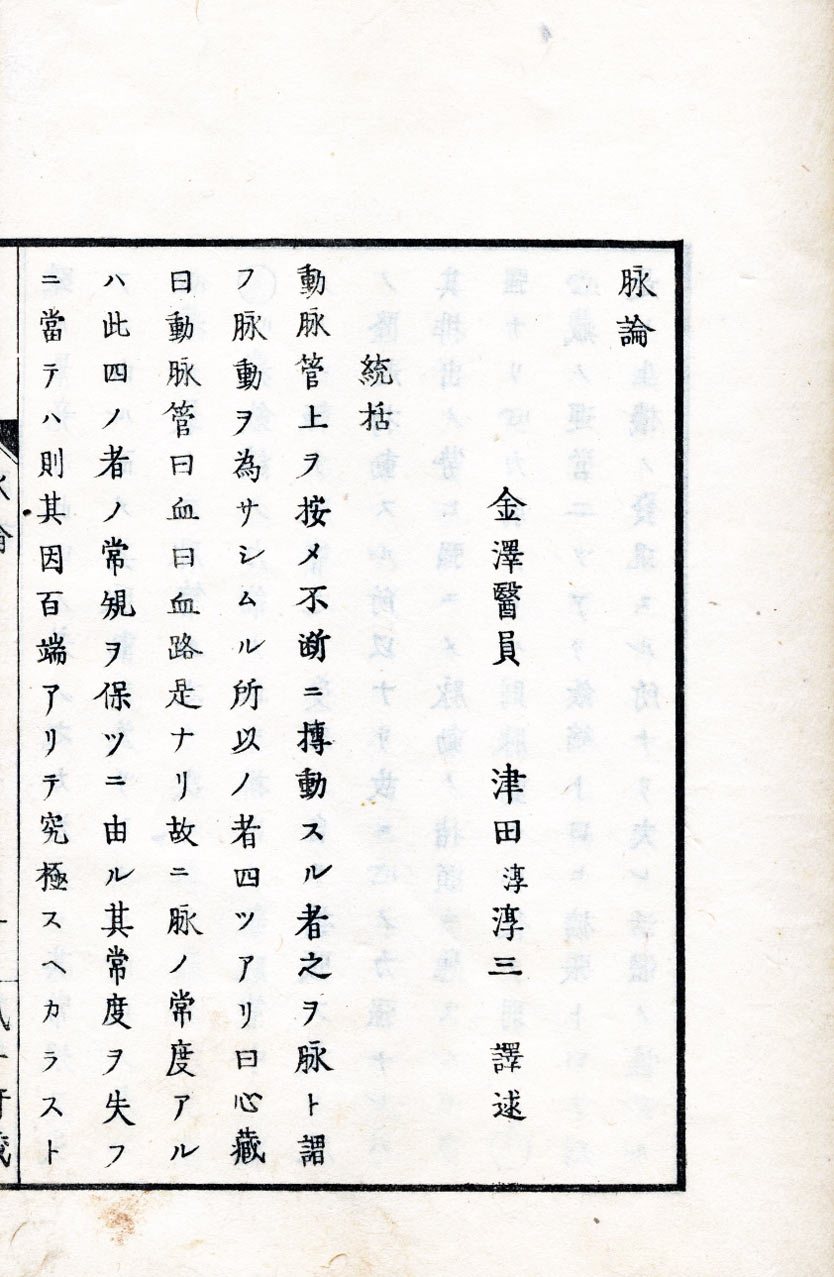 脉論
金澤醫員 津田淳淳三 譯述
統括
動脉管上ヲ按メ不断ニ摶動スル者之ヲ脉ト謂
フ脉動ヲ為サシムル所以ノ者四ツアリ曰心藏
曰動脉管曰血曰血路是ナリ故ニ脉ノ常度アル
ハ此四ノ者ノ常規ヲ保ツニ由ル其常度ヲ失フ
ニ當テハ則其因百端アリテ究極スヘカラスト